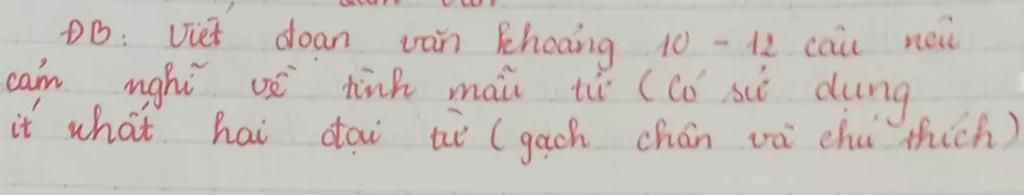 ĐB: Viết đoạn văn khoảng 10 - 12 câu nêu
cảm nghĩ về tình mẫu tử (Có sử dụng
ít nhất hai đại từ (gạch chân và chú thích)